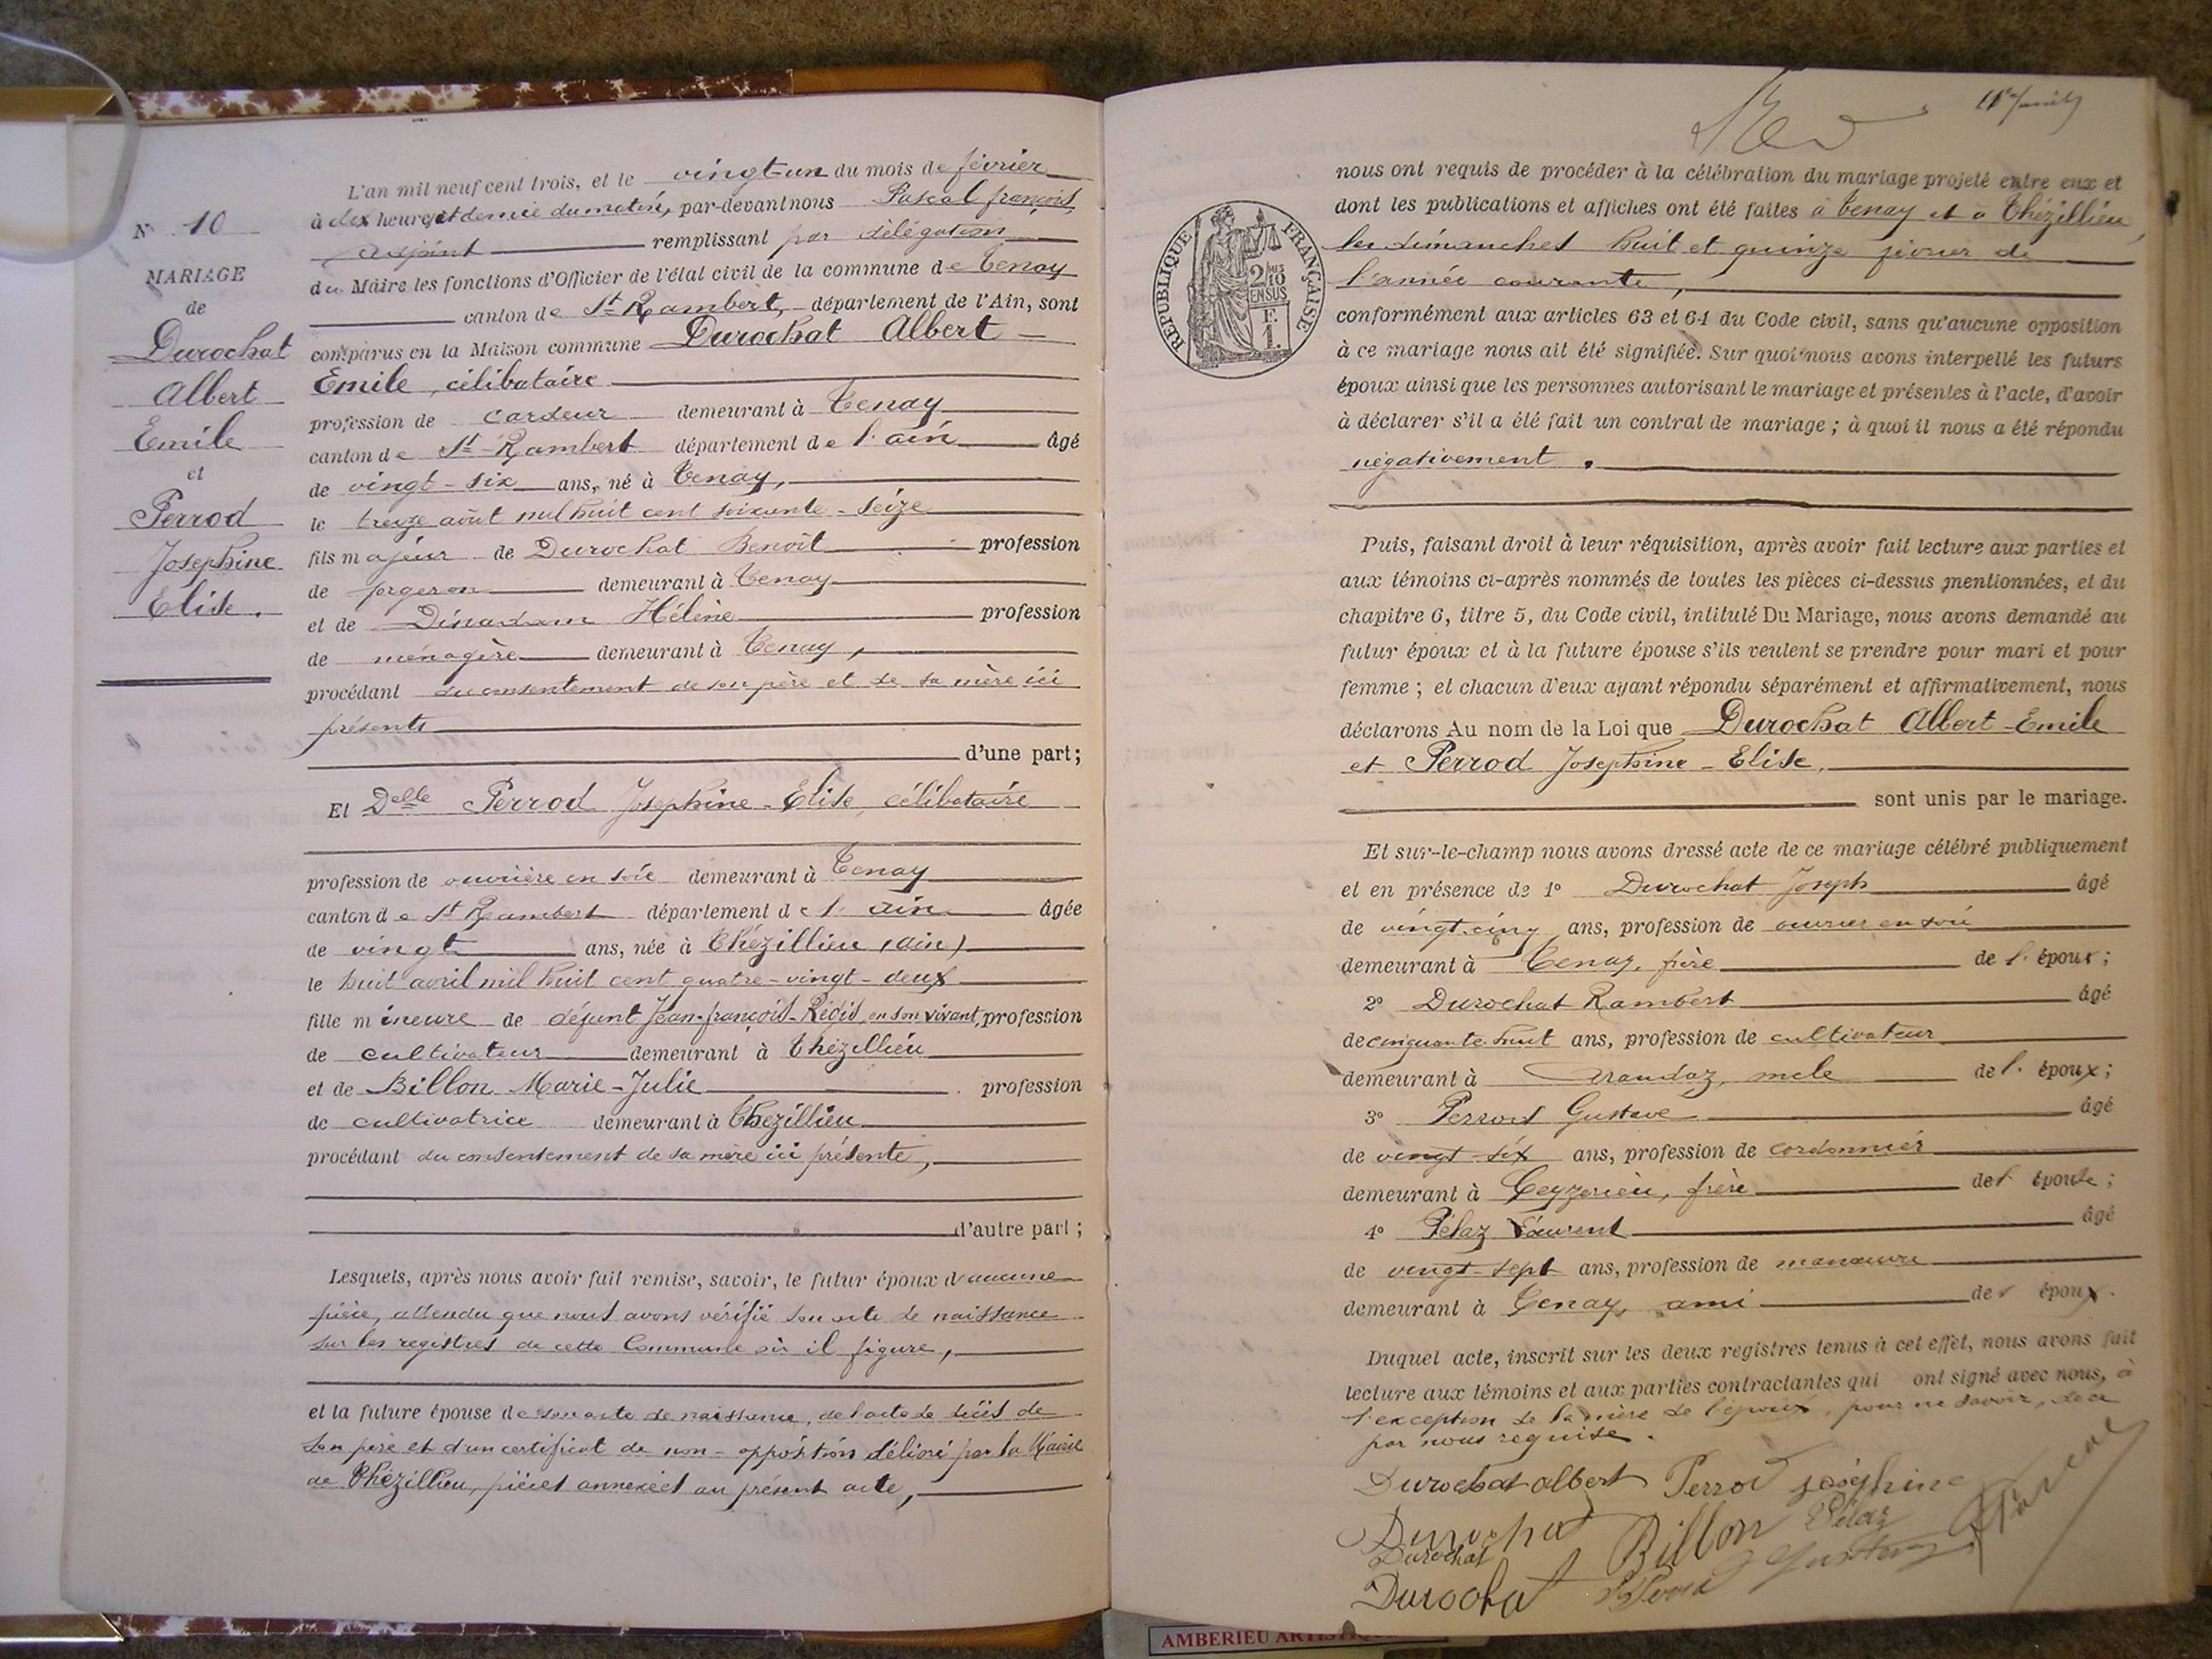 N° 10
MARIAGE
de
Durochat
Albert
Emile
et
Perrod
Josephine
Elise.
L'an mil neuf cent trois, et le vingt-un du mois de février
à dix heures et demie du matin, par-devant nous Pascal françois,
adjoint remplissant par délégation
du Maire les fonctions d'Officier de l'état civil de la commune de Tenay
canton de St Rambert, département de l'Ain, sont
comparus en la Maison commune Durochat Albert
Emile, célibataire
profession de cardeur demeurant à Tenay
canton de St Rambert département de l'ain âgé
de vingt-six ans, né à Tenay,
le treize août mil huit cent soixante-seize
fils majeur de Durochat Benoit profession
de forgeron demeurant à Tenay
et de Hélène profession
de ménagère demeurant à Tenay,
procédant du consentement de son père et de sa mère ici
présents
d'une part;
Et Delle Perrod Josephine-Elise, célibataire
profession de ouvrière en soie demeurant à Tenay
canton de St Rambert département de l'ain âgée
de vingt ans, née à Thézillieu (ain)
le huit avril mil huit cent quatre-vingt-deux
fille mineure de défunt Jean-françois-Régis, en son vivant, profession
de cultivateur demeurant à Thézillieu
et de Billon Marie-Julie profession
de cultivatrice demeurant à Thezillieu
procédant du consentement de sa mère ici présente,
d'autre part;
Lesquels, après nous avoir fait remise, savoir, le futur époux d'aucune
pièce, attendu que nous avons vérifié son acte de naissance
sur les registres de cette Commune où il figure,
et la future épouse de son acte de naissance, de l'acte de décès de
son père et d'un certificat de non-opposition délivré par la Mairie
de Thézillieu, pièces annexées au présent acte,
RÉPUBLIQUE FRANÇAISE
2/10
EN SUS
F.
1.
nous ont requis de procéder à la célébration du mariage projeté entre eux et
dont les publications et affiches ont été faites à Tenay et à Thézillieu,
les dimanches huit et quinze février de
l'année courante,
conformément aux articles 63 et 64 du Code civil, sans qu'aucune opposition
à ce mariage nous ait été signifiée. Sur quoi nous avons interpellé les futurs
époux ainsi que les personnes autorisant le mariage et présentes à l'acte, d'avoir
à déclarer s'il a été fait un contrat de mariage; à quoi il nous a été répondu
négativement.
Puis, faisant droit à leur réquisition, après avoir fait lecture aux parties et
aux témoins ci-après nommés de toutes les pièces ci-dessus mentionnées, et du
chapitre 6, titre 5, du Code civil, intitulé Du Mariage, nous avons demandé au
futur époux et à la future épouse s'ils veulent se prendre pour mari et pour
femme; et chacun d'eux ayant répondu séparément et affirmativement, nous
déclarons Au nom de la Loi que Durochat Albert-Emile
et Perrod Josephine-Elise,
sont unis par le mariage.
Et sur-le-champ nous avons dressé acte de ce mariage célébré publiquement
et en présence de 1° Durochat Joseph âgé
de vingt-cinq ans, profession de ouvrier en soie
demeurant à Tenay, frère de l'époux;
2° Durochat Rambert âgé
de cinquante-huit ans, profession de cultivateur
demeurant à Arandaz, oncle de l'époux;
3° Perrod Gustave âgé
de vingt-six ans, profession de cordonnier
demeurant à Ceyzerieu, frère de l'épouse;
4° Pélaz Laurent âgé
de vingt-sept ans, profession de manoeuvre
demeurant à Tenay, ami de l'époux.
Duquel acte, inscrit sur les deux registres tenus à cet effet, nous avons fait
lecture aux témoins et aux parties contractantes qui ont signé avec nous, à
l'exception de la mère de l'époux, pour ne savoir, de ce
par nous requise.
Durochat albert Perrod joséphine
Durochat Billon Pélaz
Durochat Gustave
Durochat Perrod
AMBERIEU